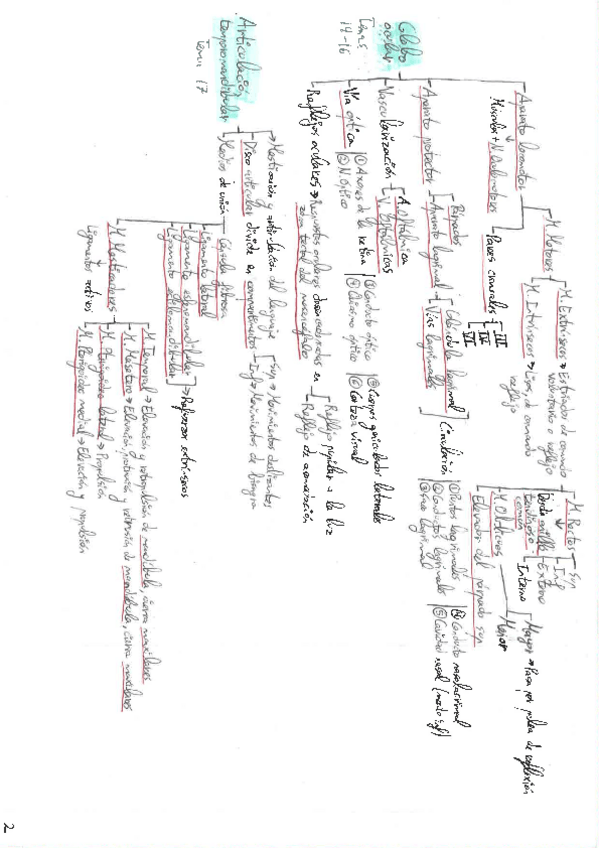 Globo ocular
Temas 14-16
Aparato locomotor
Músculos + N. Oculomotores
Pares craneales
III
IV
VI
M. Motores
M. Extrínsecos → Estriados de comando voluntario o reflejo
M. Intrínsecos → Lisos, de comando reflejo
M. Rectos
Desde anillo tendinoso común
Sup
Inf
Externo
Interno
M. Oblicuos
Mayor → Pasa por polea de reflexión
Menor
Elevador del párpado sup
Aparato protector
Párpados
Aparato lagrimal
Glándula lagrimal
Vías lagrimales
Circulación
① Puntos lagrimales
② Conductos lagrimales
③ Saco lagrimal
④ Conducto nasolacrimal
⑤ Cavidad nasal (meato inf)
Vascularización
A. Oftálmica
V. Oftálmicas
Vía óptica
① Axones de la retina
② N. Óptico
③ Conducto óptico
④ Quiasma óptico
⑤ Cuerpos geniculados laterales
⑥ Corteza visual
Reflejos oculares → Respuestas oculares desencadenadas en zona tectal del mesencéfalo
Reflejo pupilar a la luz
Reflejo de acomodación
Articulación temporomandibular
Tema 17
→ Masticación y articulación del lenguaje
Disco articular divide en compartimentos
Sup → Movimientos deslizantes
Inf → Movimientos de bisagra
Medios de unión
Cápsula fibrosa
Ligamento lateral
Ligamento esfenomandibular
Ligamento estilomandibular
→ Refuerzos extrínsecos
M. Masticadores
Ligamentos activos
M. Temporal → Elevación y retropulsión de mandíbula, cierra maxilares
M. Masetero → Elevación, protrusión y retrusión de mandíbula, cierra maxilares
M. Pterigoideo lateral → Propulsión
M. Pterigoideo medial → Elevación y propulsión
2